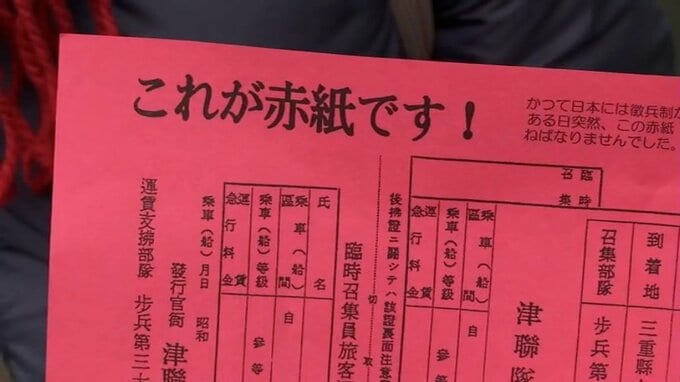 これが赤紙です！
かつて日本には徴兵制が
ある日突然、この赤紙
ねばなりませんでした。
臨時
召集
到着地
三重縣
召集部隊
歩兵第
津聯隊
運賃
急行料金
乗車(船)等級
參等
乗車(船)
區間
自
後拂證ニ關シテハ該證裏面注意
切取
臨時召集員旅客
氏名
乗車(船)
區間
自
乗車(船)等級
參等
運賃
急行料金
乗車(船)月日 昭和
發行官衙 津聯
運賃支拂部隊 歩兵第三十